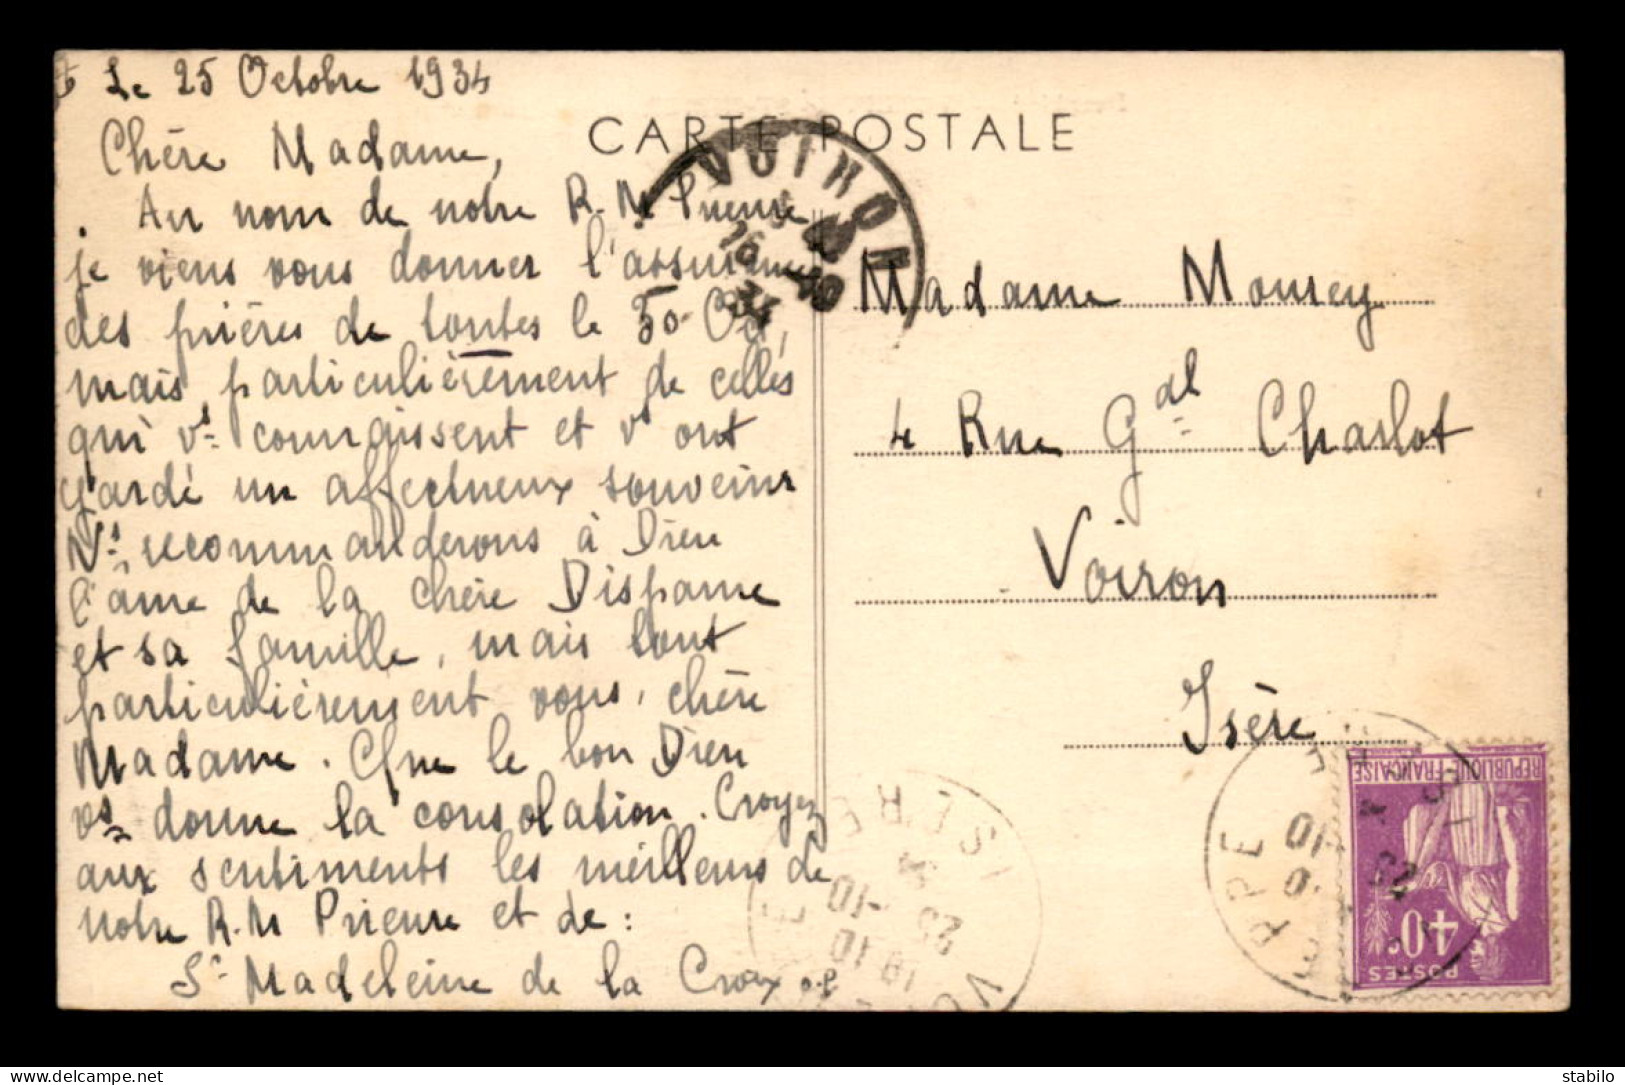 Le 25 Octobre 1934
Chère Madame,
Au nom de notre R. M. Prieure
je viens vous donner l'assurance
des prières de toutes le 30 Oct,
mais particulièrement de celles
qui vs connaissent et vs ont
gardé un affectueux souvenir
Ns recommanderons à Dieu
l'âme de la chère
et sa famille, mais tout
particulièrement vous, chère
Madame. Que le bon Dieu
vs donne la consolation. Croyez
aux sentiments les meilleurs de
notre R. M Prieure et de :
Sr Madeleine de la Croix
CARTE POSTALE
VOIRON
34
Madame Mourey
4 Rue Gdl Charlot
Voiron
Isère
ISERE
25
-10
34
REPUBLIQUE FRANÇAISE
40c
POSTES
delcampe.net
stabilo